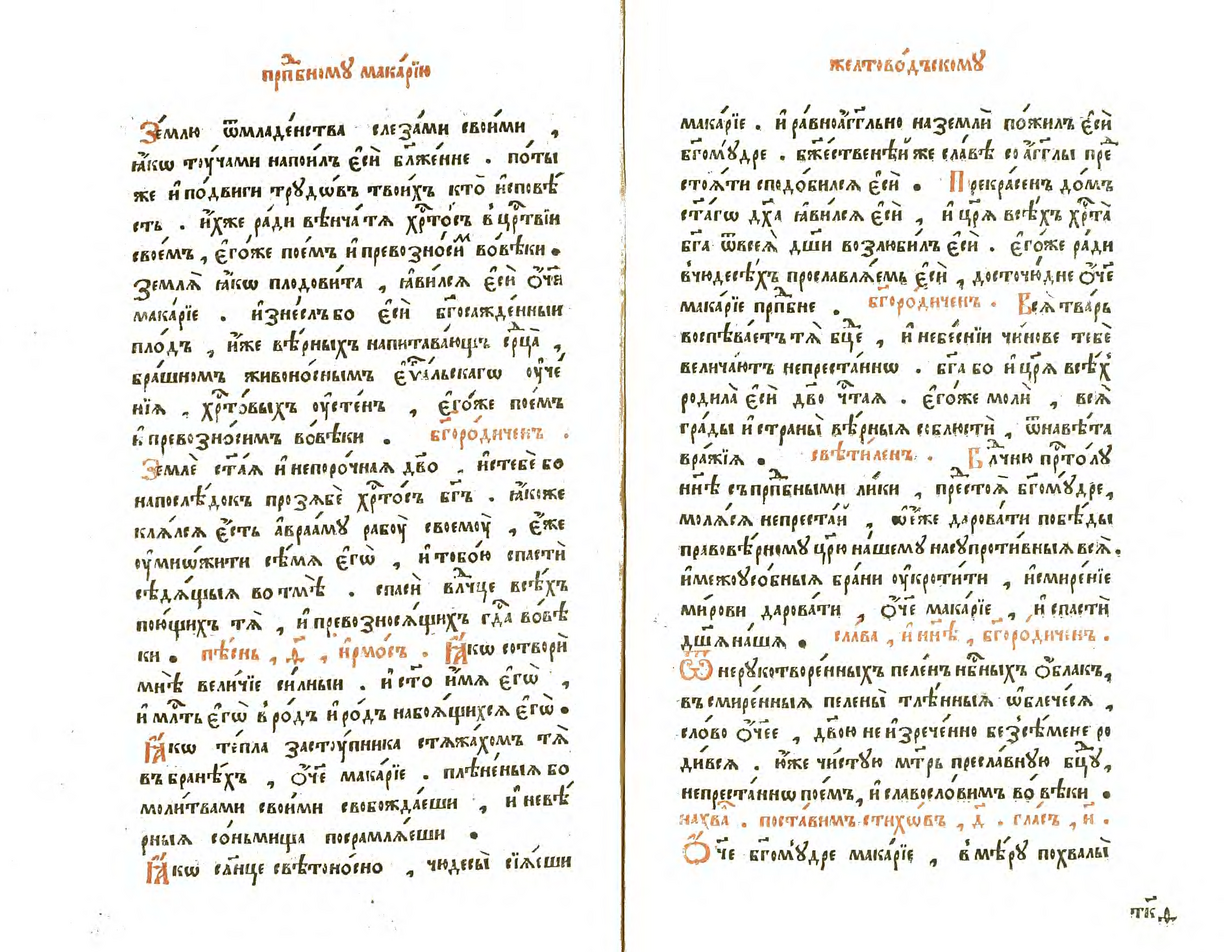 прпⷣбномꙋ мака́рїю
Зе́млю ѿмладе́нства слеза́ми свои́ми ,
ꙗ҆́кѡ тоу́чами напои́лъ є҆сѝ бл҃же́нне . по́ты
же и҆по́двиги трꙋдѡ́въ твои́хъ кто̀ и҆сповѣ́
сть . и҆́хже ради вѣнча́ тѧ хрⷭ҇то́съ в црⷭ҇твїи
свое́мъ , є҆го́же пое́мъ и҆превозно́сиⷨ вовѣ́ки .
Землѧ̀ ꙗ҆́кѡ плодови́та , ꙗ҆ви́лсѧ є҆сѝ о҆́ч҃е
мака́рїе . и҆зне́слъ бо є҆сѝ бг҃осажде́нныи
пло́дъ , и҆́же вѣ́рныхъ напита́вающъ срⷣца̀ ,
бра́шномъ живоно́снымъ є҆ѵⷢ҇льскагѡ оу҆че
нїѧ , хрⷭ҇то́выхъ оу҆сте́нъ , є҆го́же пое́мъ
и҆ превозно́симъ вовѣ́ки . бг҃оро́диченъ .
Землѐ ст҃а́ѧ и҆ непоро́чнаѧ дв҃о , и҆стебе́ бо
напослѣ́докъ прозѧбѐ хрⷭ҇то́съ бг҃ъ . ꙗ҆́коже
клѧ́лсѧ є҆́сть а҆враа́мꙋ рабоу̀ своемоу̀ , є҆́же
оу҆мно́жити сѣ́мѧ є҆гѡ̀ , и҆ тобо́ю спастѝ
сѣдѧ́щыѧ во тмѣ̀ . спасѝ влⷣчце всѣ́хъ
пою́щихъ тѧ̀ , и҆ превозносѧ́щихъ гдⷭ҇а вовѣ́
ки . пѣ́снь , д҃ , і҆рмо́съ . Ꙗ҆́кѡ сотворѝ
мнѣ̀ вели́чїе си́лныи . и ст҃о и҆́мѧ є҆гѡ̀ ,
и҆ млⷭ҇ть є҆гѡ̀ в ро́дъ и҆ ро́дъ на боѧ́щихсѧ є҆гѡ̀ .
Ꙗ҆́кѡ те́пла застоу́пника стѧжа́хомъ тѧ̀
въ бране́хъ , о҆́ч҃е мака́рїе . плѣне́ныѧ бо
моли́твами свои́ми свобожда́еши , и҆ невѣ́
рныѧ со́ньмища посрамлѧ́еши .
Ꙗ҆́кѡ сл҃нце свѣтоно́сно , чюдесы̀ сїѧ́еши
желтово́дъскомꙋ
мака́рїе . и҆ ра́вноа҆́гг҃льно на землѝ по́жилъ є҆сѝ
бг҃омꙋ́дре . бж҃е́ственѣй же сла́вѣ со а҆́гг҃лы пре
стоѧ́ти сподо́билсѧ є҆сѝ . Прекра́сенъ до́мъ
ст҃а́гѡ дх҃а ꙗ҆ви́лсѧ є҆сѝ , и҆ цр҃ѧ̀ всѣ́хъ хрⷭ҇та̀
бг҃а ѿ всеѧ̀ дш҃и возлюби́лъ є҆сѝ . є҆го́же ради
в чюдесѣ́хъ прославлѧ́емь є҆сѝ , досточю́дне о҆́ч҃е
мака́рїе прпⷣбне . бг҃оро́диченъ . Всѧ̀ тва́рь
воспѣва́етъ тѧ̀ бцⷣе , и҆ небе́снїи чи́нове тебѐ
велича́ютъ непреста́ннѡ . бг҃а бо и҆ цр҃ѧ̀ всѣ́х
родила̀ є҆сѝ дв҃о чⷭ҇таѧ . є҆го́же молѝ , всѧ̀
гра́ды и҆ страны̀ вѣ́рныѧ соблюстѝ , ѿ навѣ́та
вра́жїѧ . свѣти́ленъ . Влⷣчню прⷭ҇то́лꙋ
нн҃ѣ съ прпⷣбными ли́ки , престоѧ̀ бг҃омꙋ́дре ,
молѧ́сѧ непреста́й , ѡ҆ є҆́же дарова́ти побѣ́ды
правовѣ́рномꙋ цр҃ю̀ на́шемꙋ на сꙋпроти́вныѧ всѧ̀ .
и҆ междоꙋсо́бныѧ бра́ни оу҆кроти́ти , и҆ смире́нїе
ми́рови дарова́ти , о҆́ч҃е мака́рїе , и҆ спастѝ
дш҃ѧ на́шѧ . сла́ва , и҆ нн҃ѣ , бг҃оро́диченъ .
Ѿ нерꙋкотворе́нныхъ пеле́н нбⷭ҇ныхъ о҆́блакъ ,
въ смире́нныѧ пелены̀ тлѣ́нныѧ ѡ҆блече́сѧ ,
сло́во о҆́ч҃ее , дв҃ою неизрече́нно без̾сѣ́мене ро
ди́всѧ . ю҆́же чи́стꙋю мт҃рь пресла́внꙋю бцⷣꙋ ,
непреста́ннѡ пое́мъ , и҆ славосло́вимъ во вѣ́ки .
на хваⷧ . поста́вимъ стихѡ́въ , д҃ . гла́съ , и҃ .
О҆́ч҃е бг҃омꙋ́дре мака́рїе , в мѣ́рꙋ похвалы̀
тк҃д